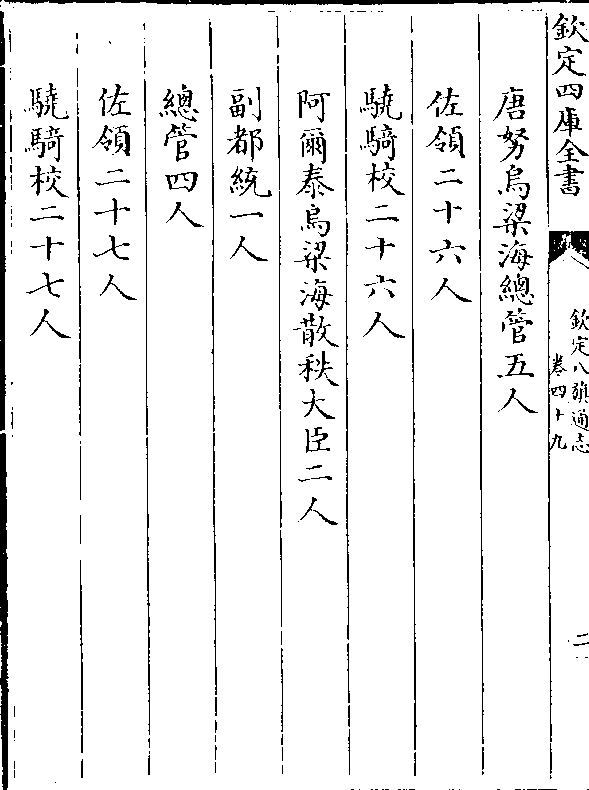 欽定四庫全書
欽定八旗通志
卷四十九
二
唐努烏梁海總管五人
佐領二十六人
驍騎校二十六人
阿爾泰烏梁海散秩大臣二人
副都統一人
總管四人
佐領二十七人
驍騎校二十七人